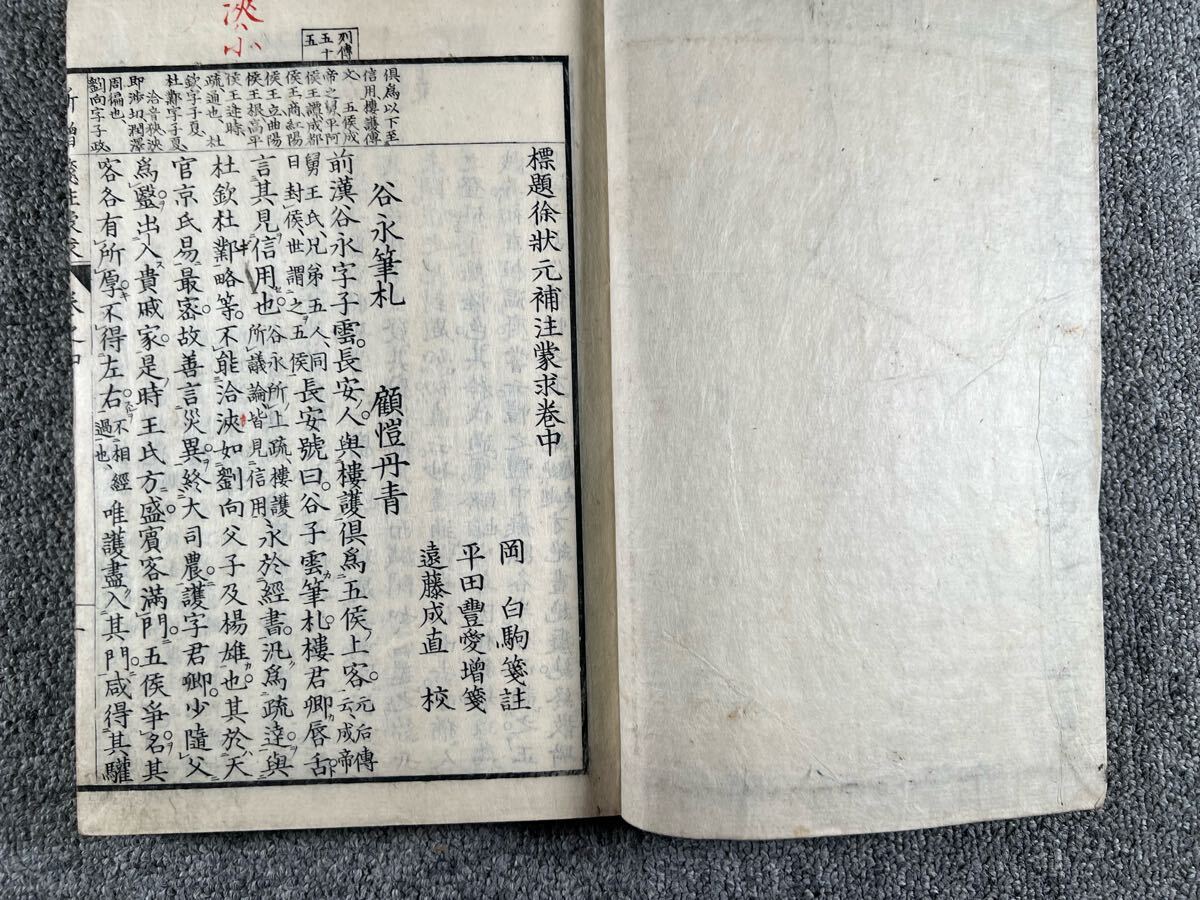 標題徐狀元補注蒙求卷中
岡 白駒箋註
平田豐愛增箋
遠藤成直 校
谷永筆札 顧愷丹青
前漢谷永字子雲長安人與樓護俱爲五侯上客元后傳云成帝
舅王氏兄弟五人同日封侯世謂之五侯長安號曰谷子雲筆札樓君卿唇舌
言其見信用也谷永所上疏樓護所議論皆見信用永於經書汎爲疏達與
杜欽杜鄴略等不能洽浹如劉向父子及楊雄也其於天
官京氏易最密故善言災異終大司農護字君卿少隨父
爲醫出入貴戚家是時王氏方盛賓客滿門五侯爭名其
客各有所厚不得左右不相經過也唯護盡入其門咸得其驩
列傳
五十
五
俱爲以下至
信用樓護傳
文 五侯成
帝之舅平阿
侯王譚成都
侯王商紅陽
侯王立曲陽
侯王根高平
侯王逢時
疏通也 杜
欽字子夏
杜鄴字子夏
洽音狹浹
即涉切潤澤
周徧也
劉向字子政
浹小
箋註蒙求